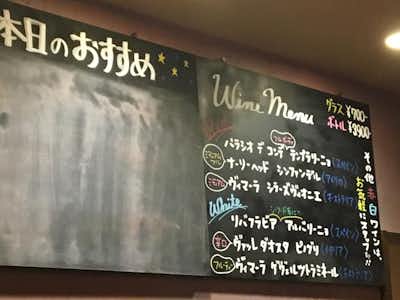 本日のおすすめ
Wine Menu
グラス ¥700-
ボトル ¥3900-
フルボディ
パラシオ デ コンデ テンプラリーニョ (スペイン)
ナーリーヘッド シンファンデル (アメリカ)
ヴィマーラ シラーズヴィオニエ (オーストラリア)
White
リバフラビア アルバリーニョ (スペイン)
辛口
ヴァッレダオスタ ピノグリ (イタリア)
フルーティ
ヴィマーラ ゲヴェルツトラミネール (オーストラリア)
その他 赤 白ワインは、
お気軽に